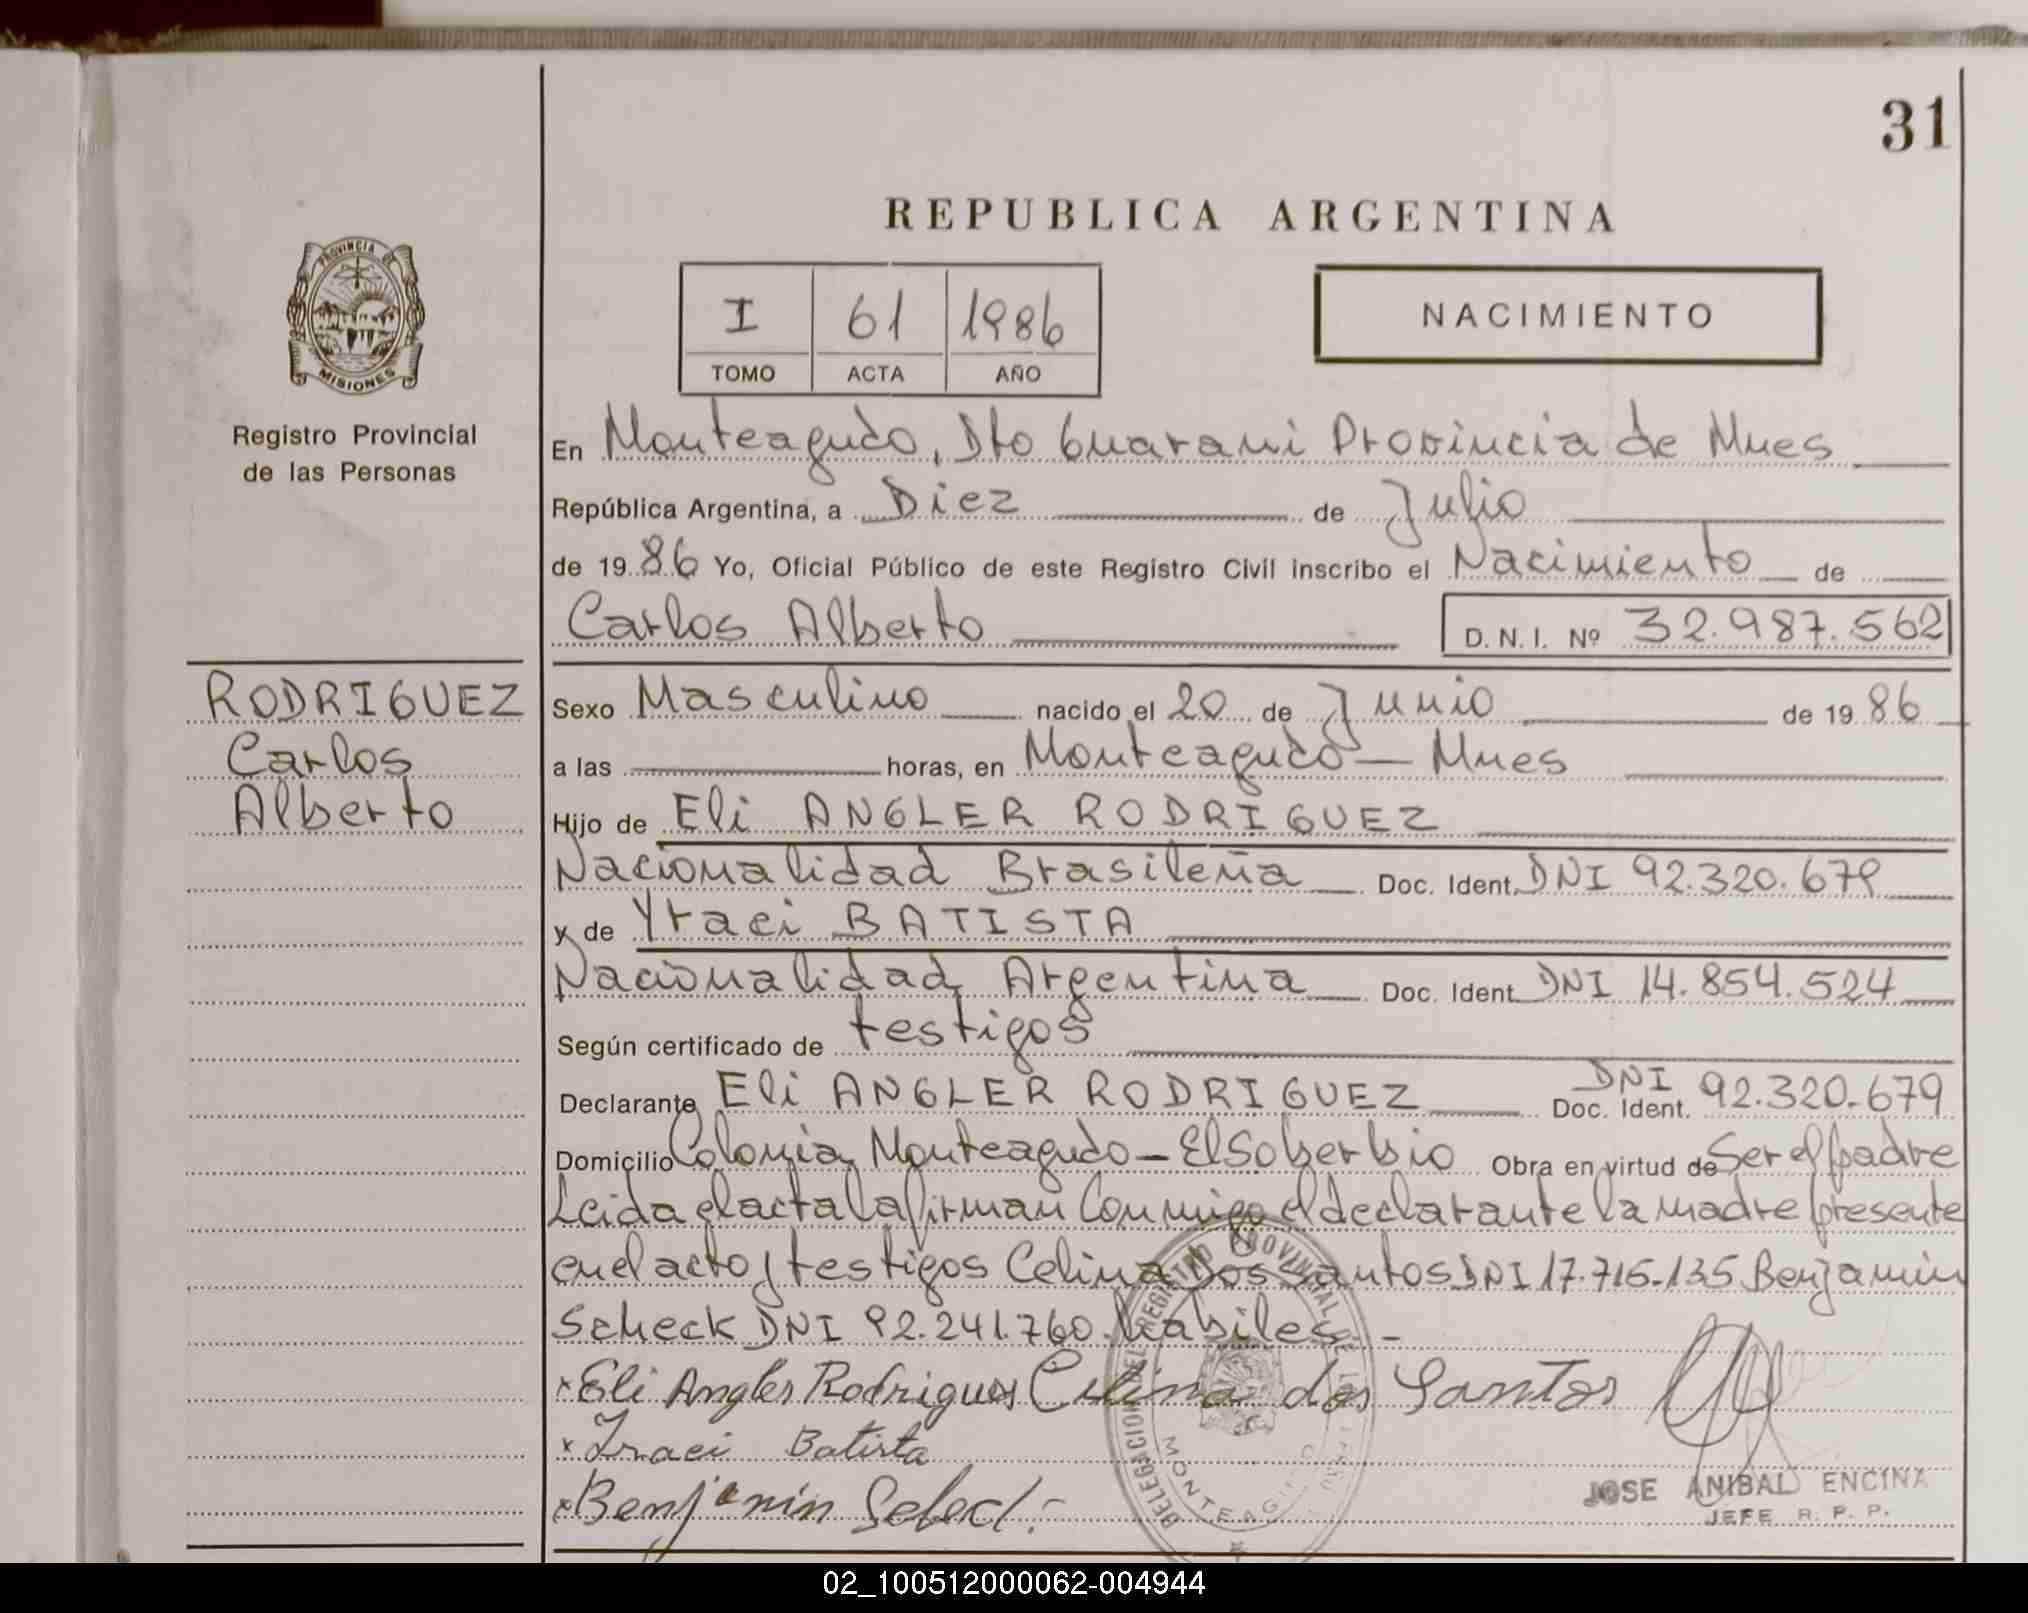 31
REPUBLICA ARGENTINA
PROVINCIA DE
MISIONES
I 61 1986
TOMO ACTA AÑO
NACIMIENTO
Registro Provincial
de las Personas
En Monteagudo, Dto Guarani Provincia de Mnes
República Argentina, a Diez de Julio
de 1986 Yo, Oficial Público de este Registro Civil inscribo el Nacimiento de
Carlos Alberto D. N. I. Nº 32.987.562
RODRIGUEZ
Carlos
Alberto
Sexo Masculino nacido el 20 de Junio de 1986
a las horas, en Monteagudo - Mnes
Hijo de Eli ANGLER RODRIGUEZ
Nacionalidad Brasileña Doc. Ident. DNI 92.320.679
y de Yraci BATISTA
Nacionalidad Argentina Doc. Ident DNI 14.854.524
Según certificado de testigos
Declarante Eli ANGLER RODRIGUEZ DNI Doc. Ident. 92.320.679
Domicilio Colonia Monteagudo - El Soberbio Obra en virtud de Ser el padre
Leida el acta la firman Conmigo el declarante la madre presente
en el acto y testigos Celina Dos Santos DNI 17.716.135 Benjamin
Scheck DNI 92.241.760 habiles. -
x Eli Angler Rodrigues Celina dos Santos
x Iraci Batista
x Benjamin
DELEGACION DEL REGISTRO PROVINCIAL DE LAS
MONTEAGUDO
JOSE ANIBAL ENCINA
JEFE R. P. P.
02_100512000062-004944